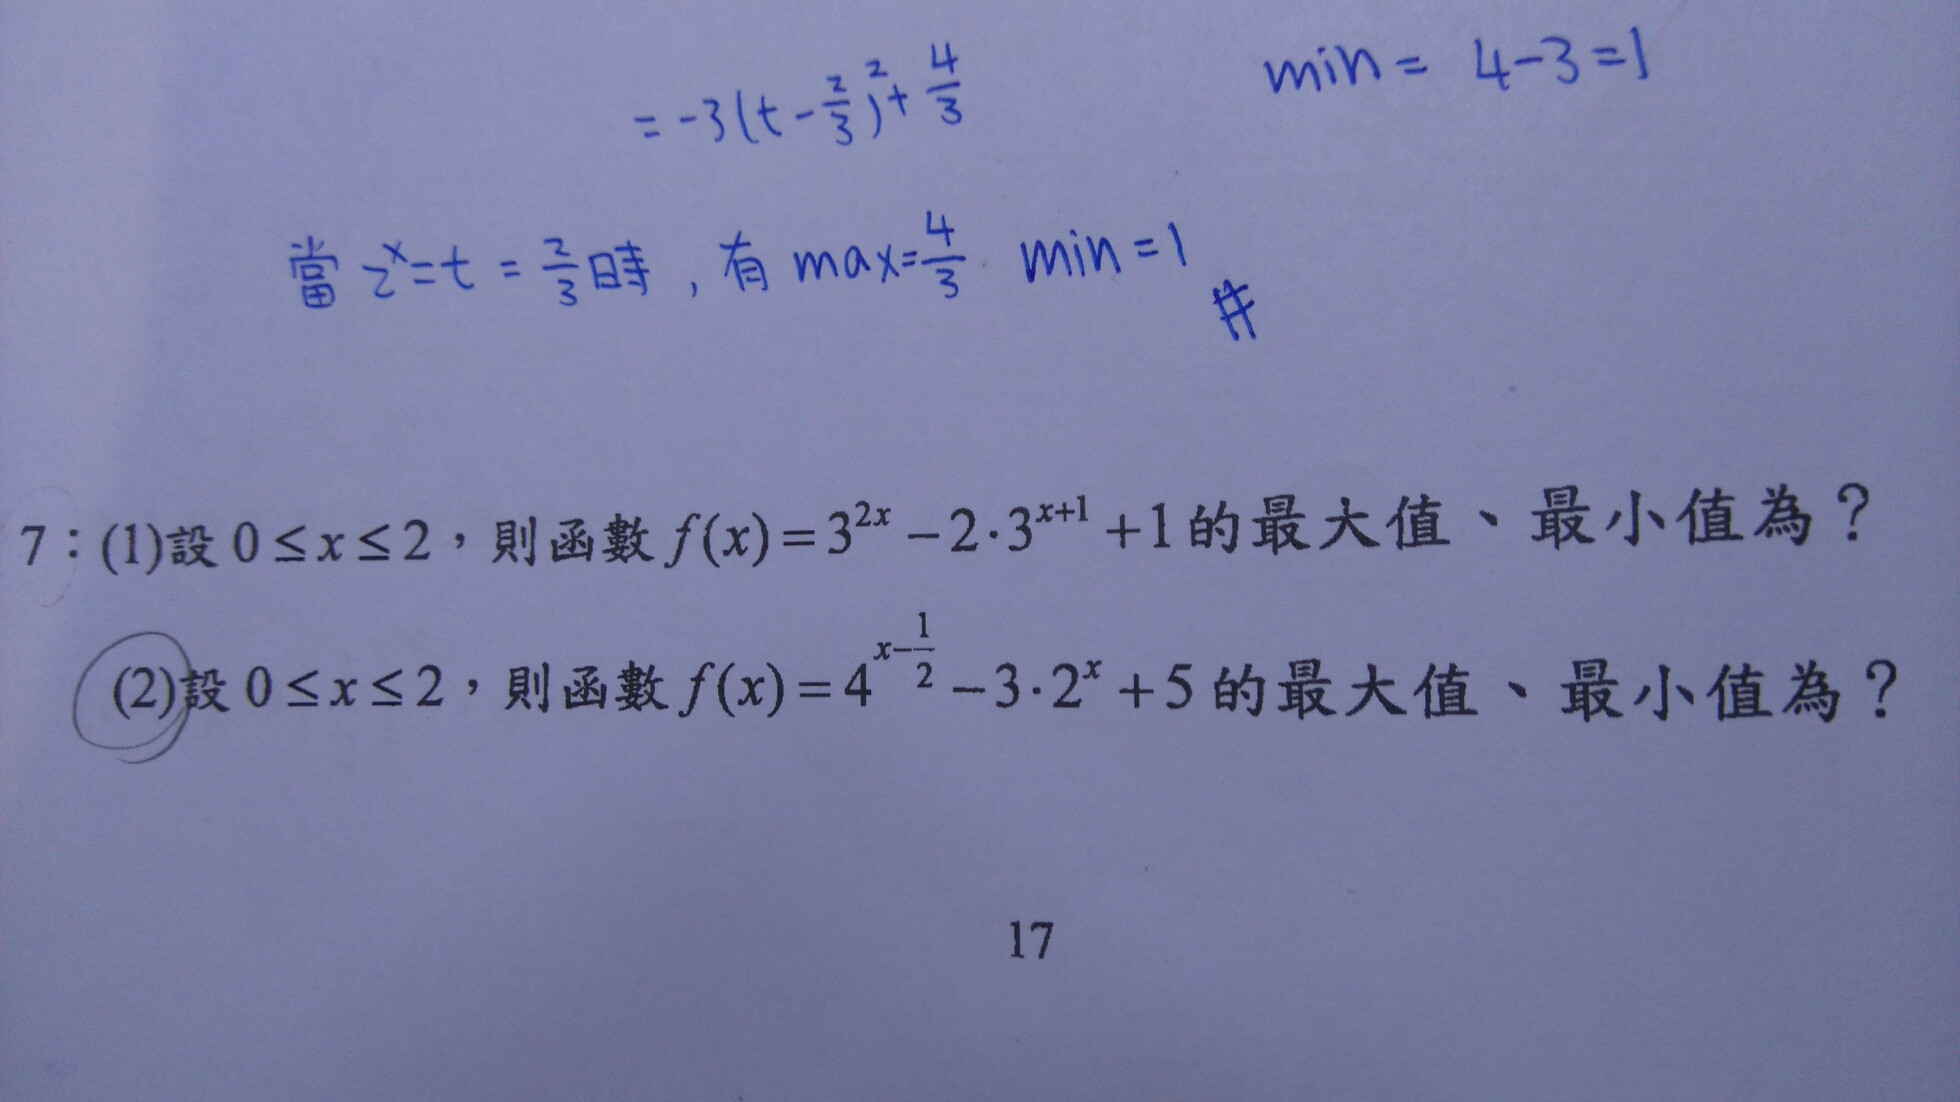 = -3(t - 2/3)² + 4/3
min = 4-3 = 1
當 2^x = t = 2/3 時 , 有 max = 4/3 min = 1 #
7：(1)設 0 ≤ x ≤ 2，則函數 f(x) = 3^{2x} − 2·3^{x+1} + 1 的最大值、最小值為？
(2)設 0 ≤ x ≤ 2，則函數 f(x) = 4^{x−1/2} − 3·2^x + 5 的最大值、最小值為？
17